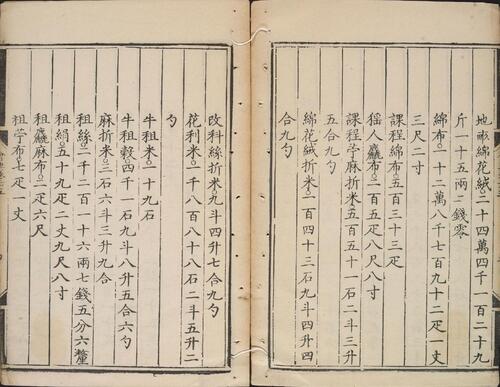 地畝綿花絨二十四萬四千一百二十九
斤一十五兩二錢零
綿布一十二萬八千七百九十二疋一丈
三尺二寸
課程綿布五百三十三疋
猺人麤布二百五疋八尺八寸
課程苧麻折米五百五十一石二斗三升
五合九勺
綿花絨折米一百四十三石九斗四升四
合九勺
改科絲折米九斗四升七合九勺
花利米一千八百八十八石二斗五升二
勺
牛租米一十九石
牛租穀四千一石九斗八升五合六勺
麻折米三石六斗三升九合
租絲二千二百一十六兩七錢五分六釐
租絹五十九疋二丈九尺八寸
租麤麻布二疋六尺
租苧布七疋一丈